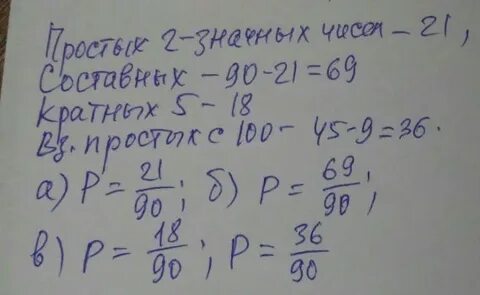 Простых 2-значных чисел – 21,
Составных – 90-21=69
Кратных 5 – 18
Вз. простых с 100 – 45-9=36.
а) P = 21/90; б) P = 69/90;
в) P = 18/90; P = 36/90